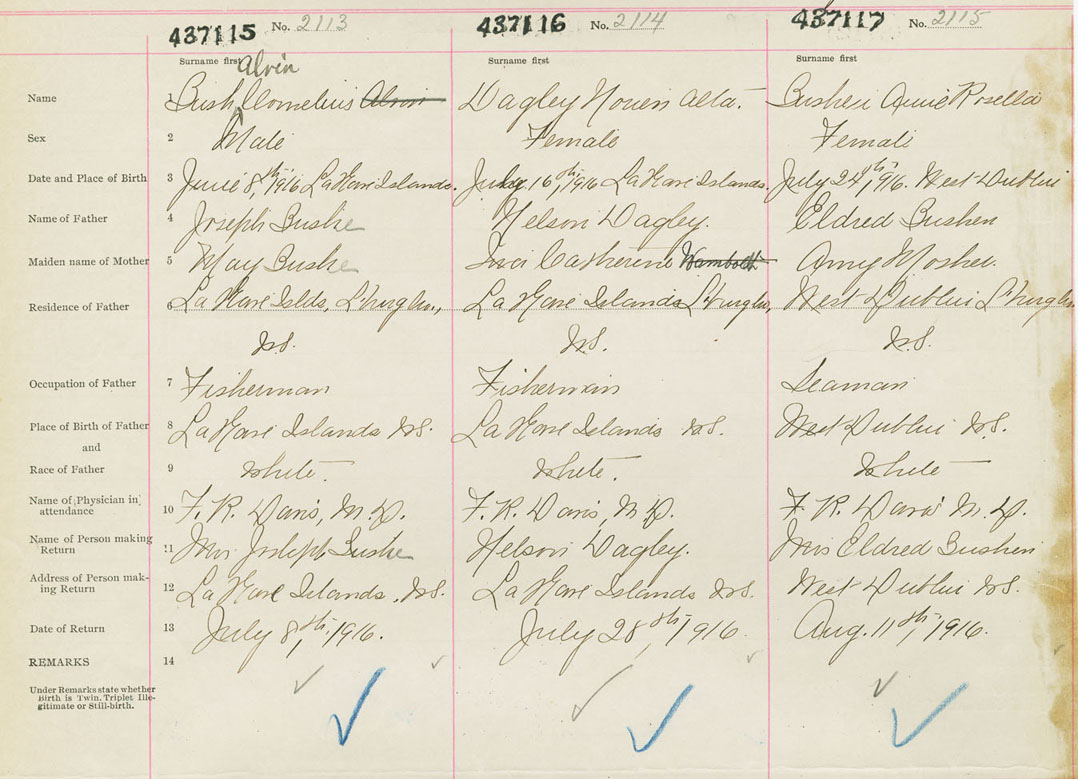 437115 No. 2113 437116 No. 2114 437117 No. 2115
Surname first Surname first Surname first
Alvin
Name 1 Bush Cornelius Alvin Dagley Alta. Annie Rosella
Sex 2 Male Female Female
Date and Place of Birth 3 June 8th, 1916 LaHave Islands. July 16th, 1916 LaHave Islands. July 24th, 1916. West Dublin
Name of Father 4 Joseph Bushe Nelson Dagley. Eldred Bushen
Maiden name of Mother 5 May Bushe Catherine Wambolt Amy Mosher.
Residence of Father 6 La Have Islds, L'burg Co., La Have Islands L'burg Co, West Dublin L'burg Co
N.S. N.S. N.S.
Occupation of Father 7 Fisherman Fisherman Seaman
Place of Birth of Father 8 LaHave Islands N.S. LaHave Islands N.S. West Dublin N.S.
and
Race of Father 9 White. White. White
Name of Physician in
attendance 10 F. R. Davis, M.D. F. R. Davis, M.D. F. R. Davis M.D.
Name of Person making
Return 11 Mrs Joseph Bushe Nelson Dagley. Mrs Eldred Bushen
Address of Person mak-
ing Return 12 La Have Islands, N.S. La Have Islands N.S. West Dublin N.S.
Date of Return 13 July 8th, 1916. July 28th, 1916. Aug. 11th, 1916.
REMARKS 14
Under Remarks state whether
Birth is Twin, Triplet Ille-
gitimate or Still-birth.